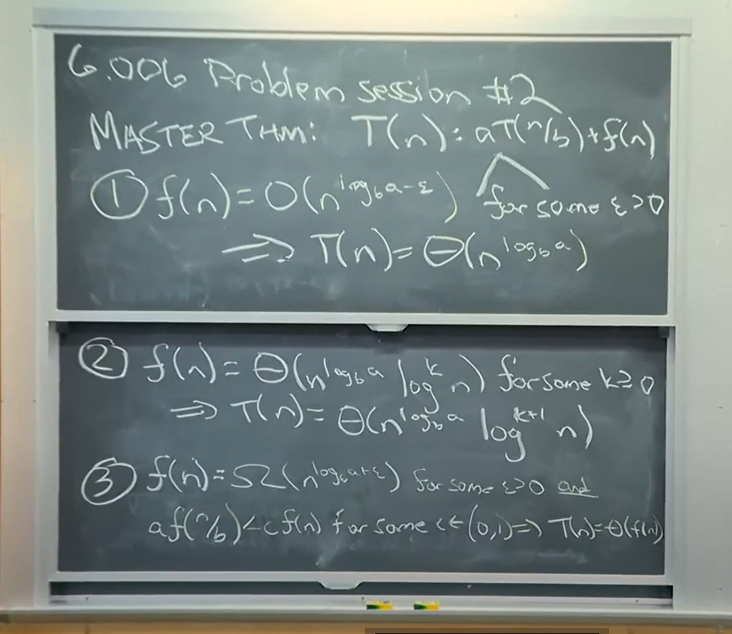 6.006 Problem session #2
MASTER THM: T(n) = aT(n/b) + f(n)
① f(n) = O(n^{log_b a - ε}) for some ε>0
⇒ T(n) = Θ(n^{log_b a})
② f(n) = Θ(n^{log_b a} log^k n) for some k≥0
⇒ T(n) = Θ(n^{log_b a} log^{k+1} n)
③ f(n) = Ω(n^{log_b a+ε}) for some ε>0 and
af(n/b) < cf(n) for some c∈(0,1) ⇒ T(n) = Θ(f(n))